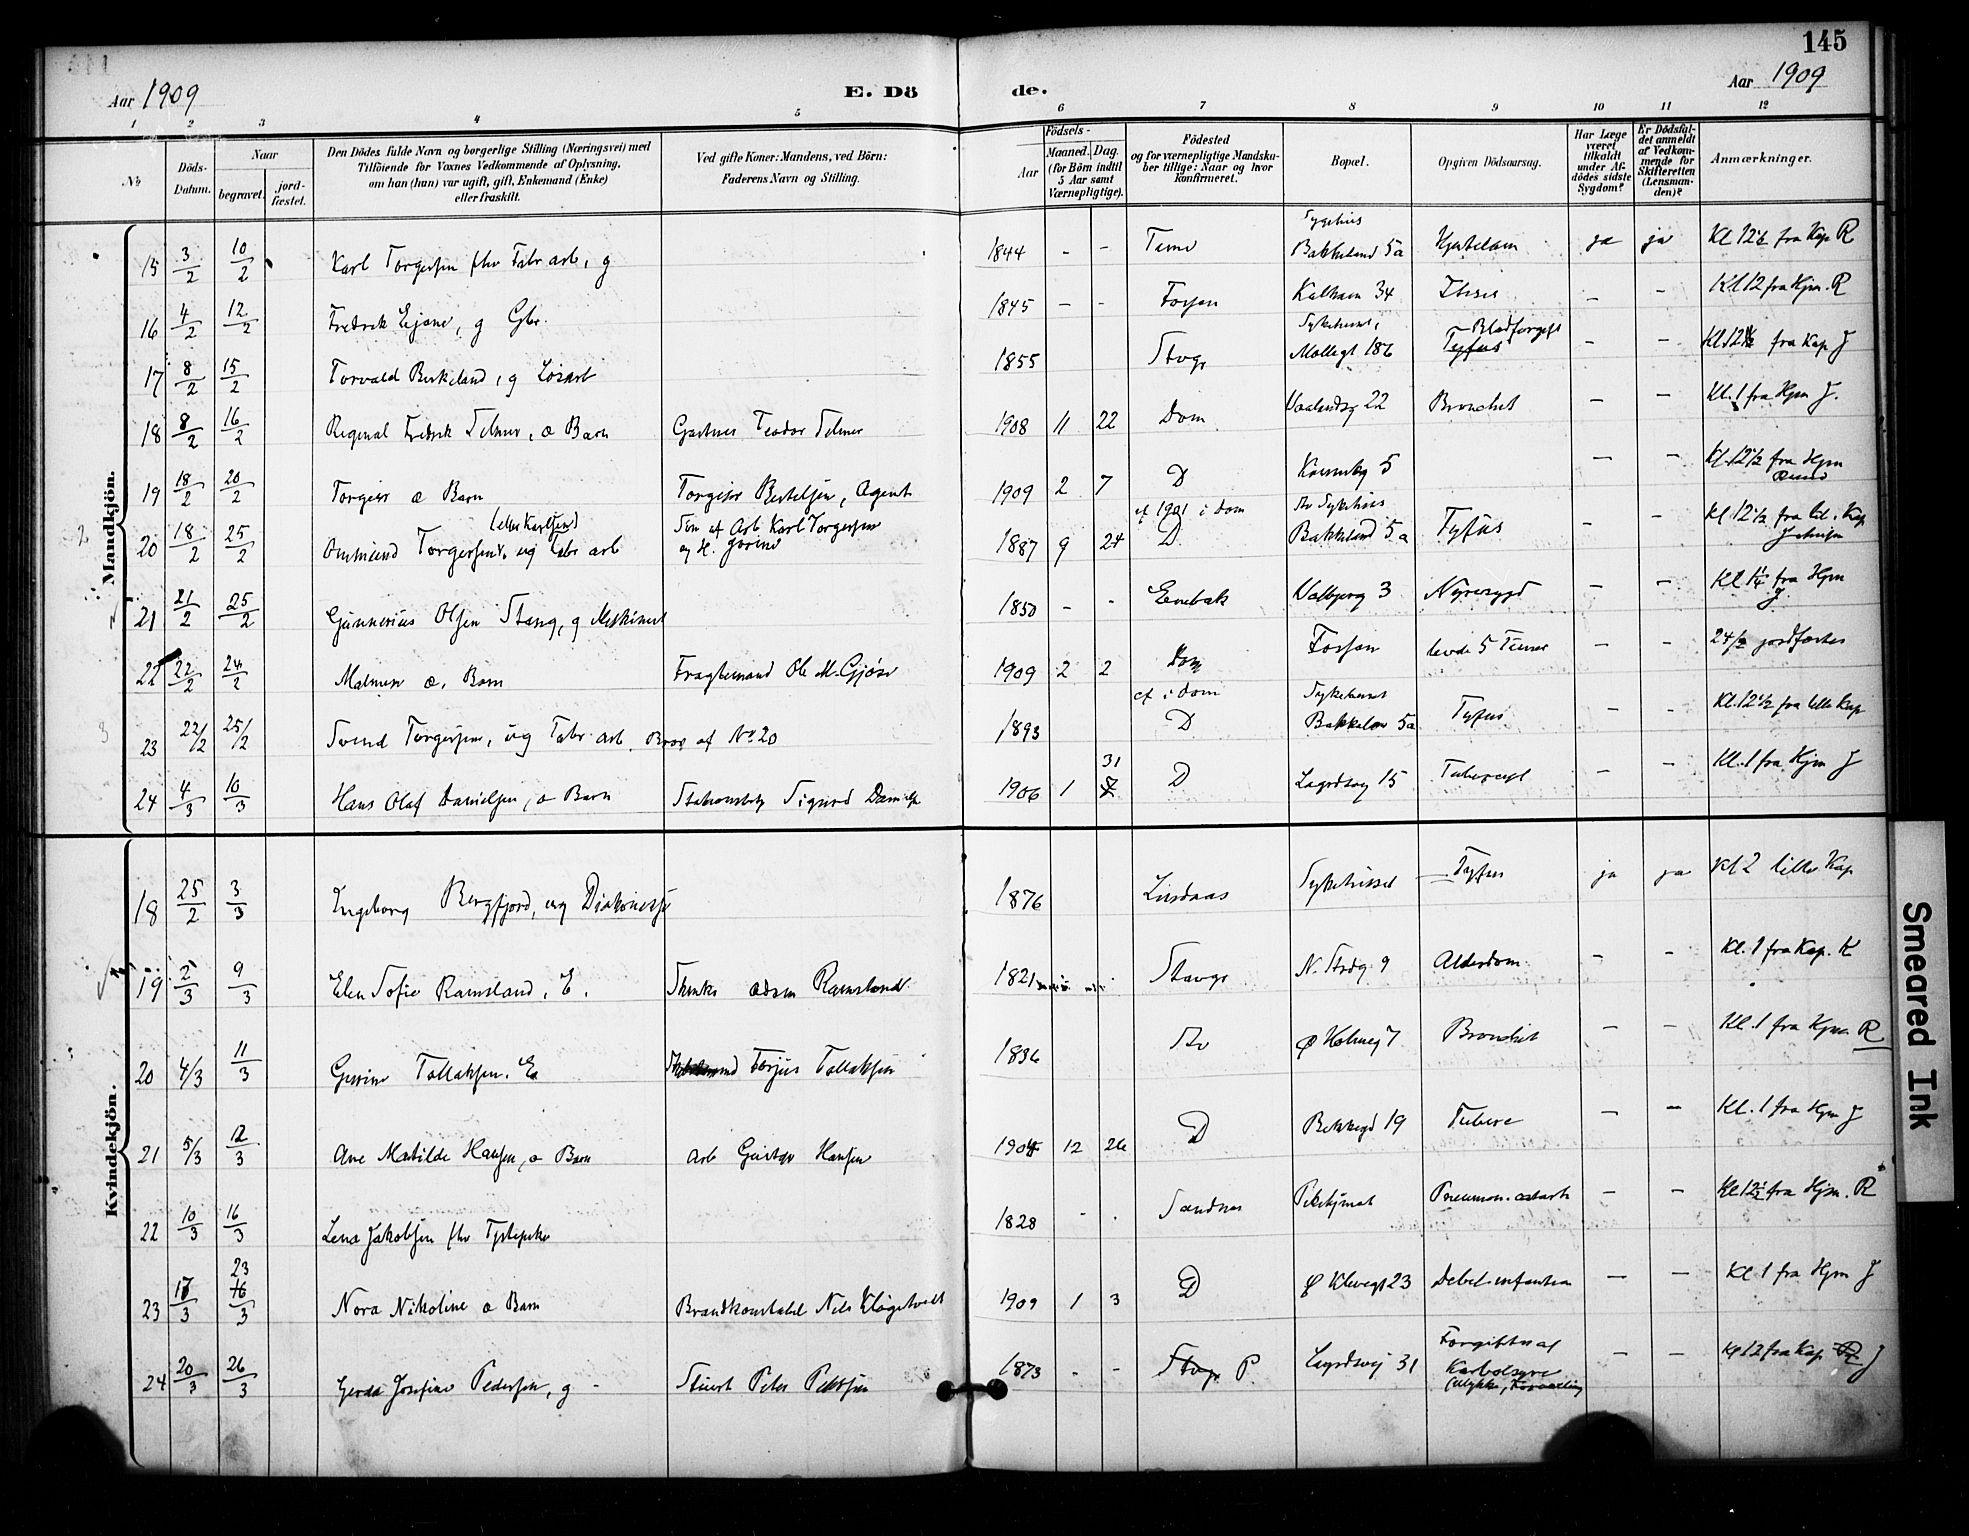 145
Aar 1909
E. Dö
de.
Aar 1909
1 2 3 4 5 6 7 8 9 10 11 12
No
Döds-Datum.
Naar
begravet.
jord-fæstet.
Den Dödes fulde Navn og borgerlige Stilling (Næringsvei) med
Tilföiende for Voxnes Vedkommende af Oplysning,
om han (hun) var ugift, gift, Enkemand (Enke)
eller fraskilt.
Ved gifte Koner: Mandens, ved Börn:
Faderens Navn og Stilling.
Födsels-
Aar
Maaned. Dag.
(for Börn indtil
5 Aar samt
Værnepligtige).
Födested
og for værnepligtige Mandska-
ber tillige: Naar og hvor
konfirmeret.
Bopæl.
Opgiven Dödsaarsag.
Har Læge
været
tilkaldt
under Af-
dödes sidste
Sygdom?
Er Dödsfal-
det anmeldt
af Vedkom-
mende for
Skifteretten
(Lensman-
den)?
Anmærkninger.
Mandkjön.
15 3/2 10/2 Karl Torgersen fhv Fabr arb, g 1844 - - Time Sygehus Bakkeland 5a ja ja Kl 12½ fra Kap R
16 4/2 12/2 Fredrik Ejane, g Gbr. 1845 - - Fossan Kalham 34 - - Kl 12 fra Hjm. R
17 8/2 15/2 Torvald Birkeland, g Løsarb 1855 Stvgr Sykehuset, Møllegt 186 Tyfus Blodforgift - - Kl. 12½ fra Kap J
18 8/2 16/2 Reginal Fredrik Selmer, æ Barn Gartner Teodor Selmer 1908 11 22 Dom Vaalandsg 22 Bronchit - - Kl. 1 fra Hjm J.
19 18/2 20/2 Torgeir æ Barn Torgeir Bertelsen, Agent 1909 2 7 D 5 - - Kl. 12½ fra Hjm
20 18/2 25/2 Ommund Torgersen, ug Fabr arb (eller Karlsen) Søn af Arb Karl Torgersen og H. 1887 9 24 cf 1901 i Dom D Sykehus Bakkeland 5a Tyfus - - Kl. 12½ fra lil. Kap
21 21/2 25/2 Gunnerius Olsen Stang, g Maskinist 1850 - - Enebak Valbjerg 3 Nyresygd - - Kl 1¼ fra Hjm J
22 22/2 24/2 æ, Barn Fragtemand Ole M. Gjøse 1909 2 2 Dom Fossan levde 5 Timer - - 24/2 jordfæstet
23 22/2 25/2 Svend Torgersen, ug Fabr. arb. Bror af No 20 1893 cf i Dom D Sykehuset Bakkelan 5a Tyfus - - Kl. 12½ fra lille Kap
24 4/3 10/3 Hans Olaf Danielsen, æ Barn Sigurd Danielsen 1906 1 31 D Lagårdsvg 15 - - Kl. 1 fra Hjm J
Kvindekjön.
18 25/2 3/3 Ingeborg Bergfjord, ug Diakonisse 1876 Lindaas Sykehuset Tyfus ja ja Kl 2 lille Kap
19 2/3 9/3 Elen Sofie Ramsland, E. Adam Ramsland 1821 Stavgr N. Strdg. 9 Alderdom - - Kl. 1 fra Kap. K
20 4/3 11/3 Gurine Tollaksen. E Torjus Tollaksen 1836 Stv Ø Holmeg 7 Bronchit - - Kl. 1 fra Hjm. R
21 5/3 12/3 Ane Matilde Hansen, æ Barn Arb Gustav Hansen 1904 12 26 D Bekkegd 19 Tuberc - - Kl. 1 fra Hjm J
22 10/3 16/3 Lena Jakobsen fhv Tjstepike 1828 - - Sandnes Pneumon. - - Kl 12½ fra Hjm. R
23 17/3 23/3 Nora Nikoline æ Barn Brandkonstabel Nils Kløgetvedt 1909 1 3 D Ø Klevegt 23 Debil. infantum - - Kl 1 fra Hjm J
24 20/3 26/3 Gerda Josefine Pedersen, g - Stuert Peter Pedersen 1873 - - Stvgr P. Lagårdsvej 31 Forgiftn af Karbolsyre (Ulykke, Forvexling - - Kl 12 fra Kap J
Smeared Ink